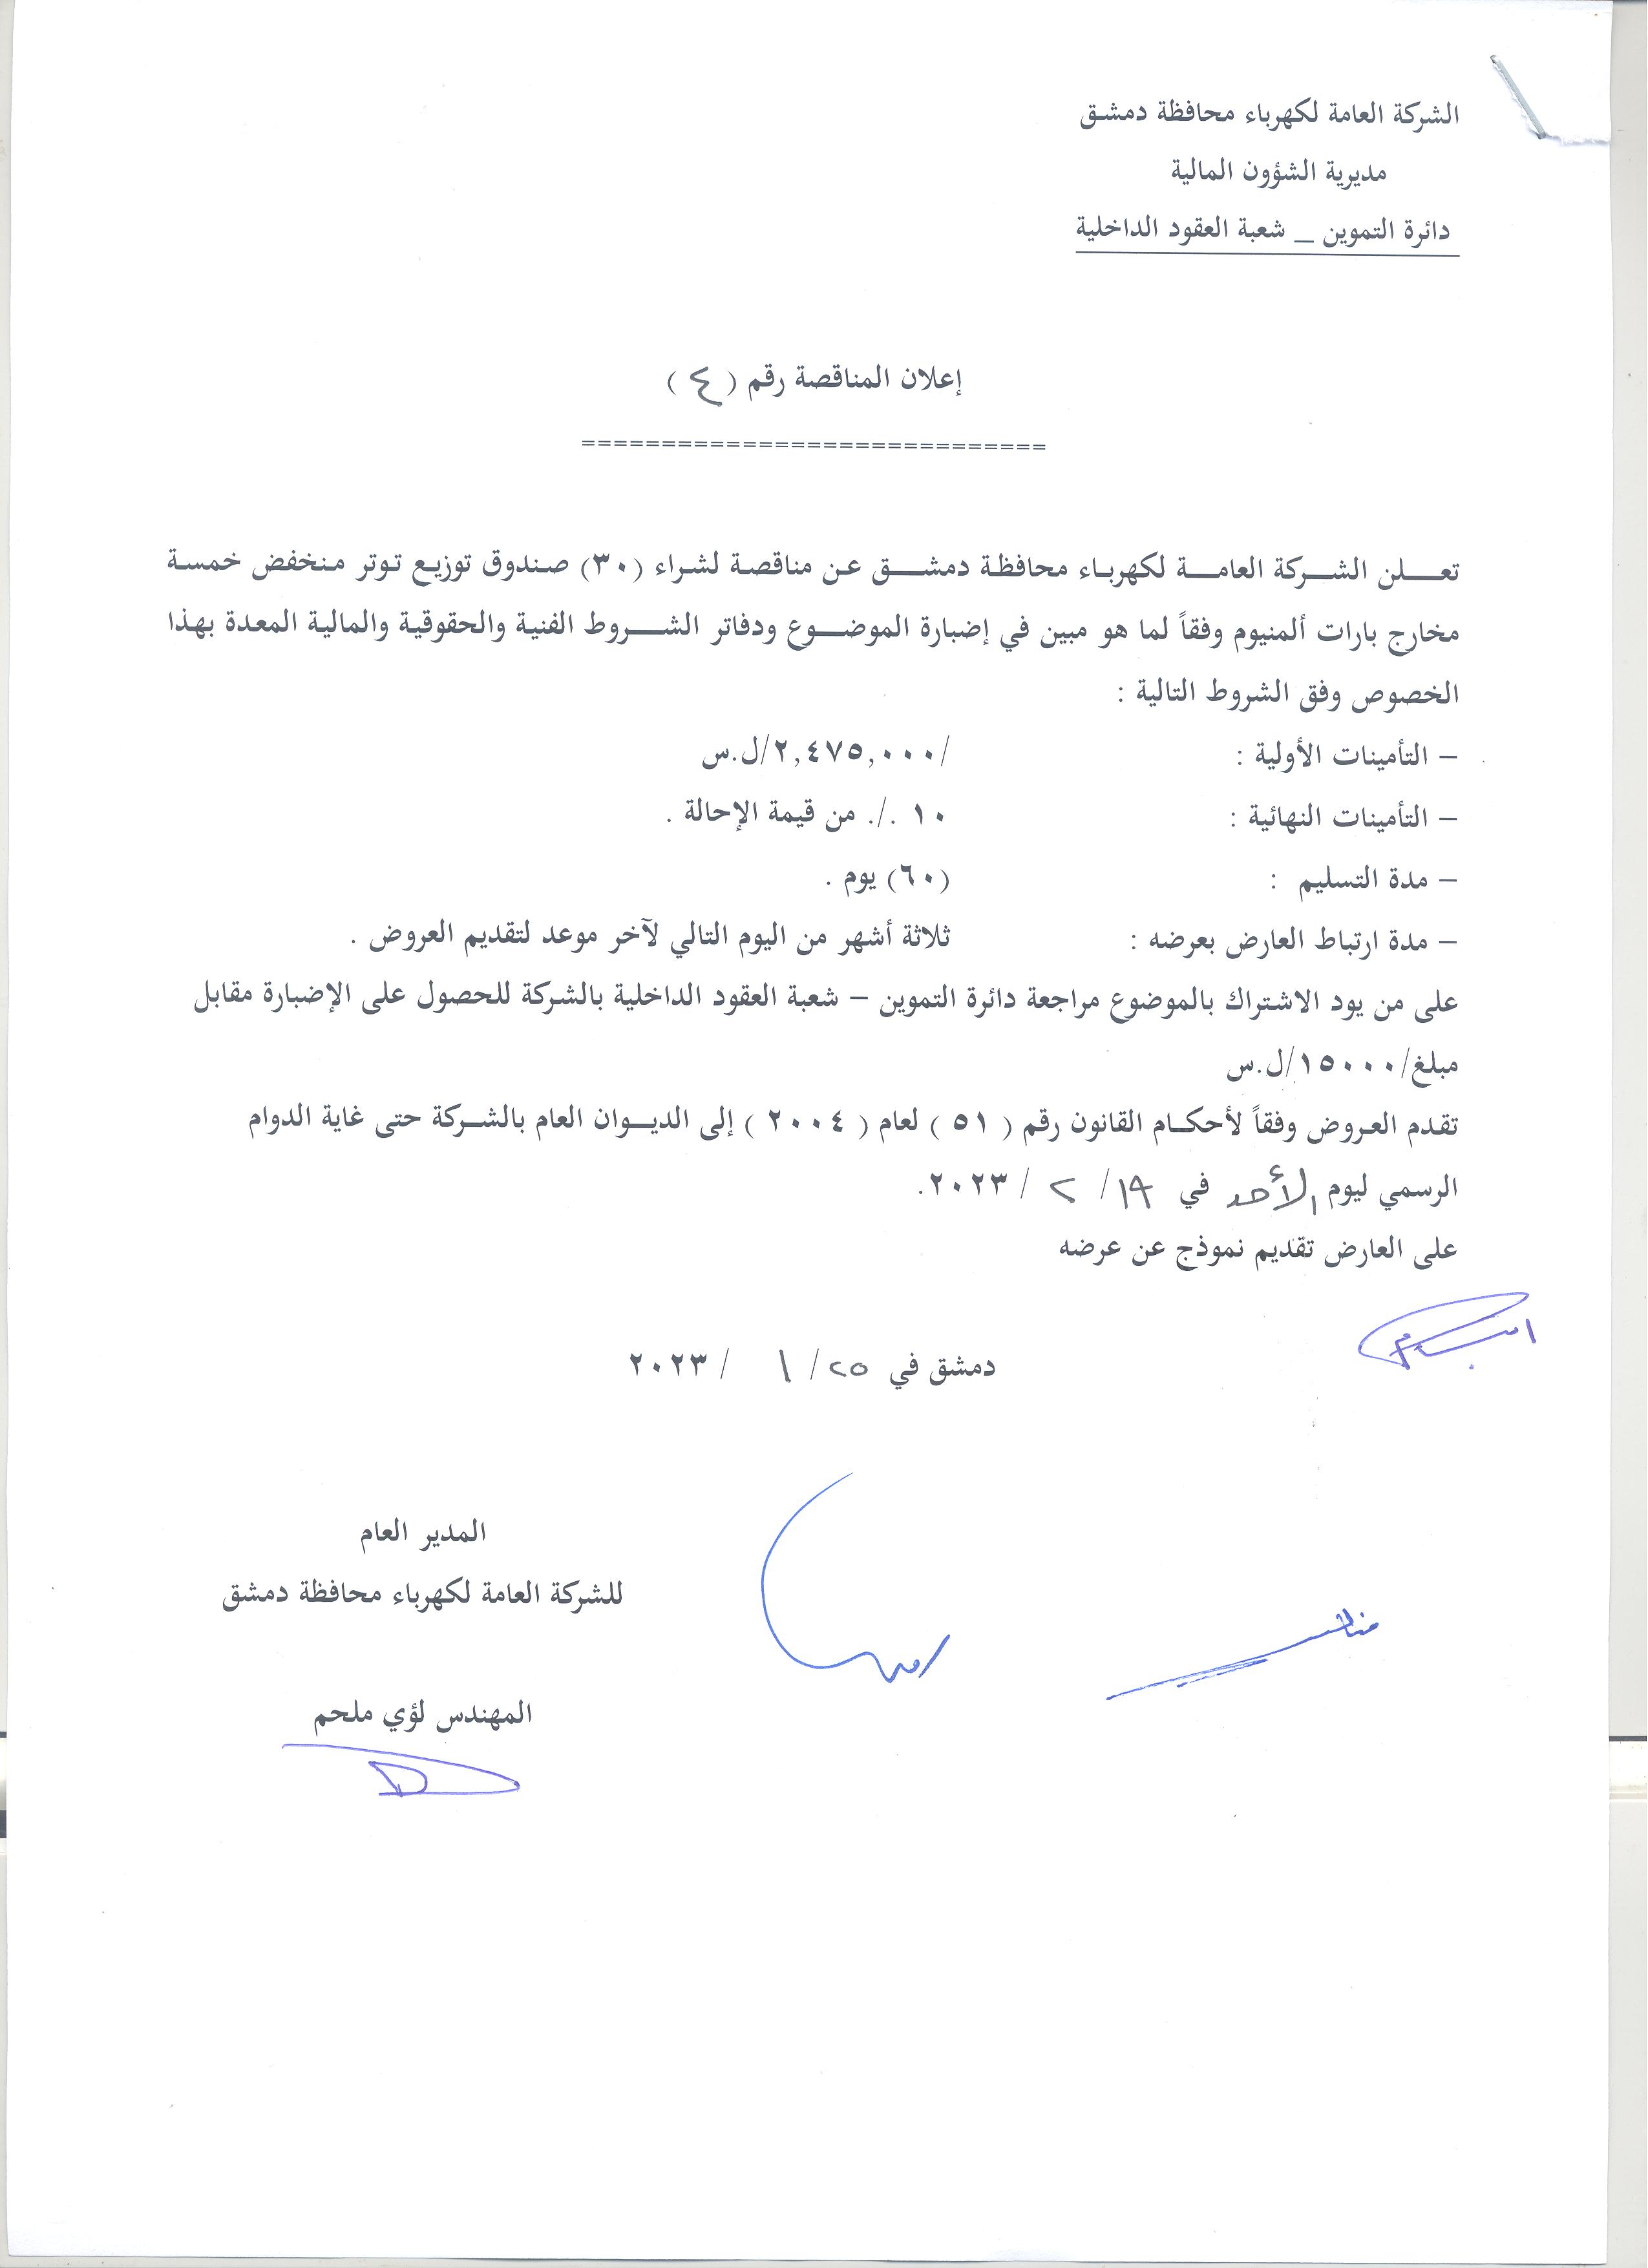 الشركة العامة لكهرباء محافظة دمشق
مديرية الشؤون المالية
دائرة التموين _ شعبة العقود الداخلية
إعلان المناقصة رقم ( ٤ )
=============================
تعلن الشركة العامة لكهرباء محافظة دمشق عن مناقصة لشراء (٣٠) صندوق توزيع توتر منخفض خمسة
مخارج بارات ألمنيوم وفقاً لما هو مبين في إضبارة الموضوع ودفاتر الشروط الفنية والحقوقية والمالية المعدة بهذا
الخصوص وفق الشروط التالية :
– التأمينات الأولية : /٢,٤٧٥,٠٠٠/ل.س
– التأمينات النهائية : ١٠ ./. من قيمة الإحالة .
– مدة التسليم : (٦٠) يوم .
– مدة ارتباط العارض بعرضه : ثلاثة أشهر من اليوم التالي لآخر موعد لتقديم العروض .
على من يود الاشتراك بالموضوع مراجعة دائرة التموين – شعبة العقود الداخلية بالشركة للحصول على الإضبارة مقابل
مبلغ/١٥٠٠٠/ل.س
تقدم العروض وفقاً لأحكام القانون رقم ( ٥١ ) لعام ( ٢٠٠٤ ) إلى الديوان العام بالشركة حتى غاية الدوام
الرسمي ليوم الأحد في ١٩ / ٢ / ٢٠٢٣.
على العارض تقديم نموذج عن عرضه
دمشق في ٢٥ / ١ / ٢٠٢٣
المدير العام
للشركة العامة لكهرباء محافظة دمشق
المهندس لؤي ملحم